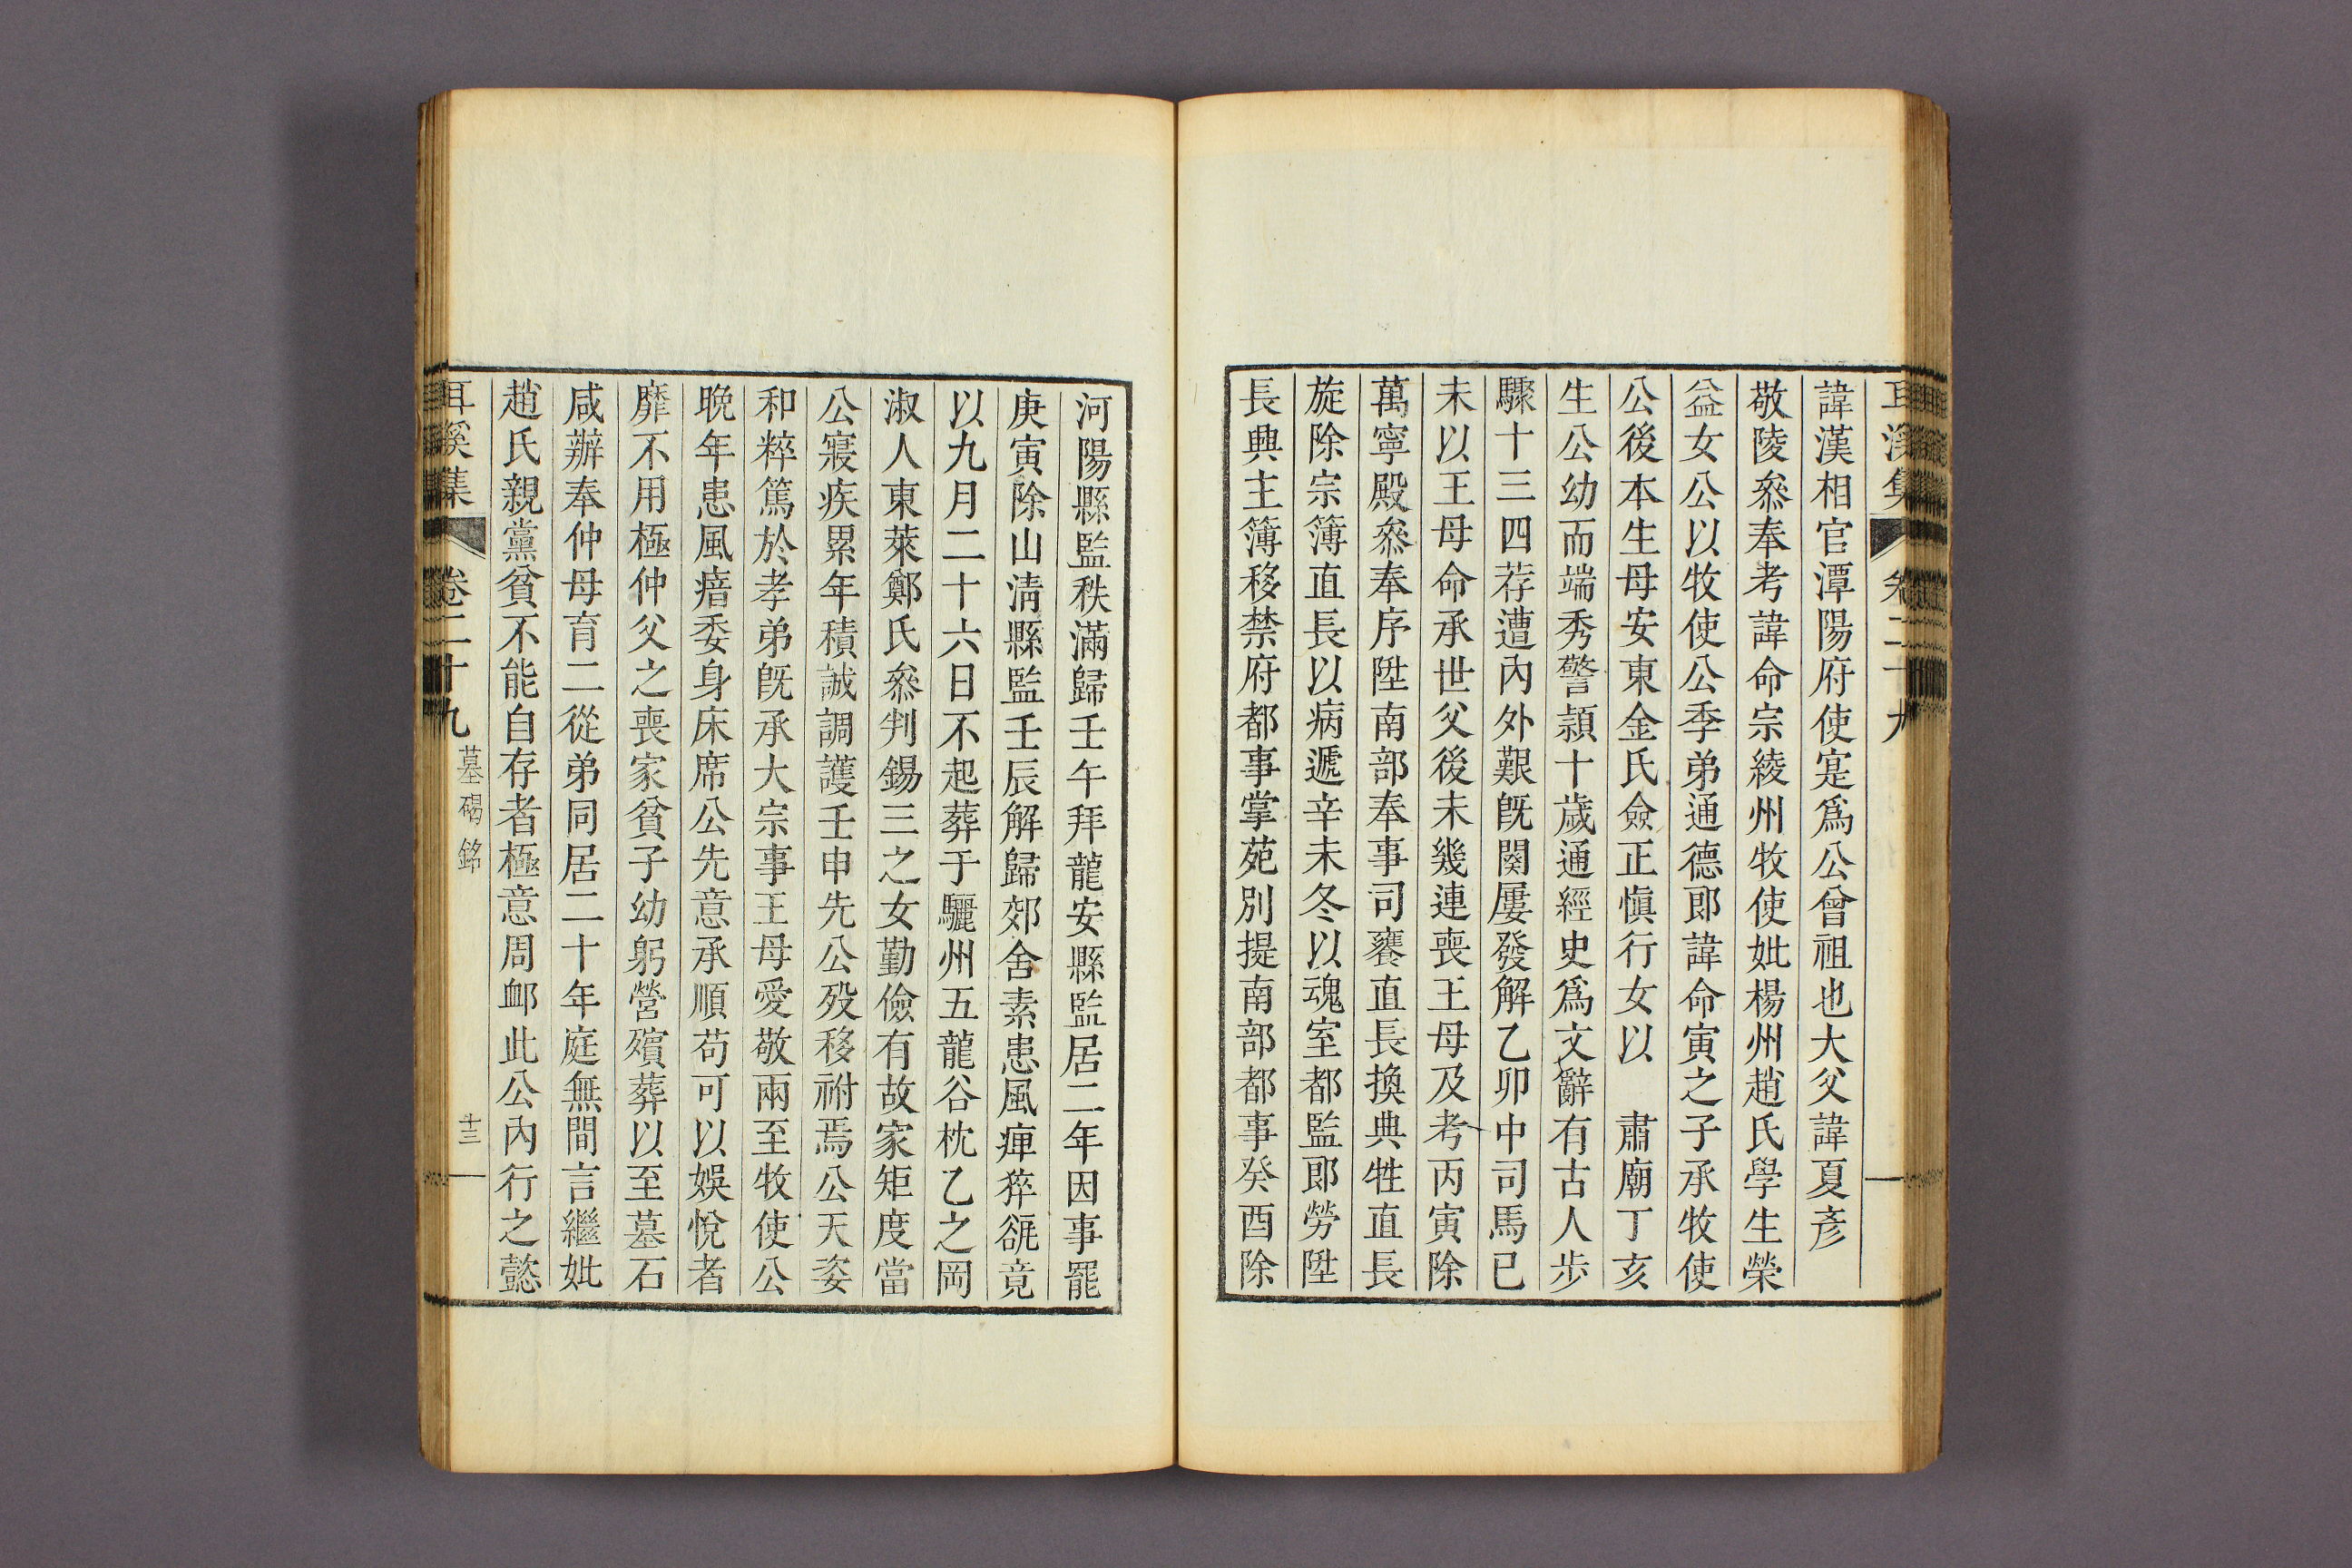 耳溪集 卷二十九
諱漢相官潭陽府使寔爲公曾祖也大父諱夏彥
敬陵叅奉考諱命宗綾州牧使妣楊州趙氏學生榮
益女公以牧使公季弟通德郞諱命寅之子承牧使
公後本生母安東金氏僉正愼行女以 肅廟丁亥
生公幼而端秀警頴十歲通經史爲文辭有古人步
驟十三四荐遭內外艱旣闋屢發解乙卯中司馬已
未以王母命承世父後未幾連喪王母及考丙寅除
萬寧殿叅奉序陞南部奉事司饔直長換典牲直長
旋除宗簿直長以病遞辛未冬以魂室都監郞勞陞
長興主簿移禁府都事掌苑別提南部都事癸酉除
河陽縣監秩滿歸壬午拜龍安縣監居二年因事罷
庚寅除山淸縣監壬辰解歸郊舍素患風痺猝㞃竟
以九月二十六日不起葬于驪州五龍谷枕乙之岡
淑人東萊鄭氏叅判錫三之女勤儉有故家矩度當
公寢疾累年積誠調護壬申先公歿移祔焉公天姿
和粹篤於孝弟旣承大宗事王母愛敬兩至牧使公
晚年患風瘖委身床席公先意承順苟可以娛悅者
靡不用極仲父之喪家貧子幼躬營殯葬以至墓石
咸辦奉仲母育二從弟同居二十年庭無間言繼妣
趙氏親黨貧不能自存者極意周卹此公內行之懿
耳溪集 卷二十九 墓碣銘 十三